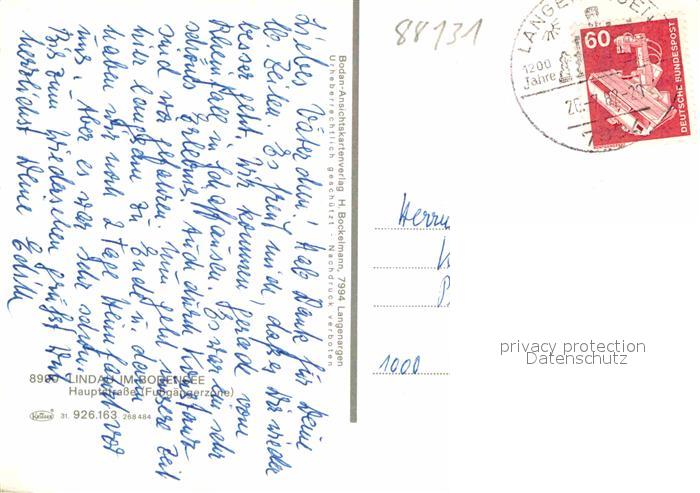 Liebes Väterchen! Hab Dank für Deine
lb Zeilen. Es freut mich, daß es Dir wieder
besser geht. Wir kommen gerad vom
Rheinfall in Schaffhausen. Es war ein sehr
schönes Erlebnis. Auch durch Konstanz
sind wir gefahren. Nun geht unsere Zeit
hier langsam zu Ende u. dann
haben wir noch 2 Tage Heimfahrt vor
uns. Aber es war sehr schön.
Bis zum Wiedersehen grüßt Dich
herzlichst Deine Edith
Bodan-Ansichtskartenverlag H. Bockelmann, 7994 Langenargen
Urheberrechtlich geschützt · Nachdruck verboten
8990 LINDAU IM BODENSEE
Hauptstraße (Fußgängerzone)
31. 926.163 268484
88131
LANGEN
1200
Jahre
60
DEUTSCHE BUNDESPOST
Herrn
1000
privacy protection
Datenschutz